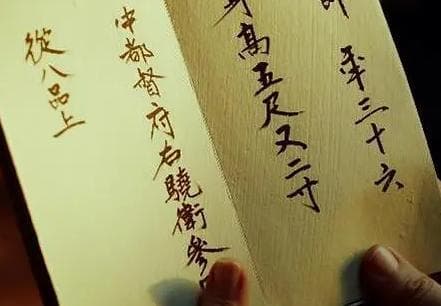 年三十六
身高五尺又二寸
中都督府右驍衛參
從八品上